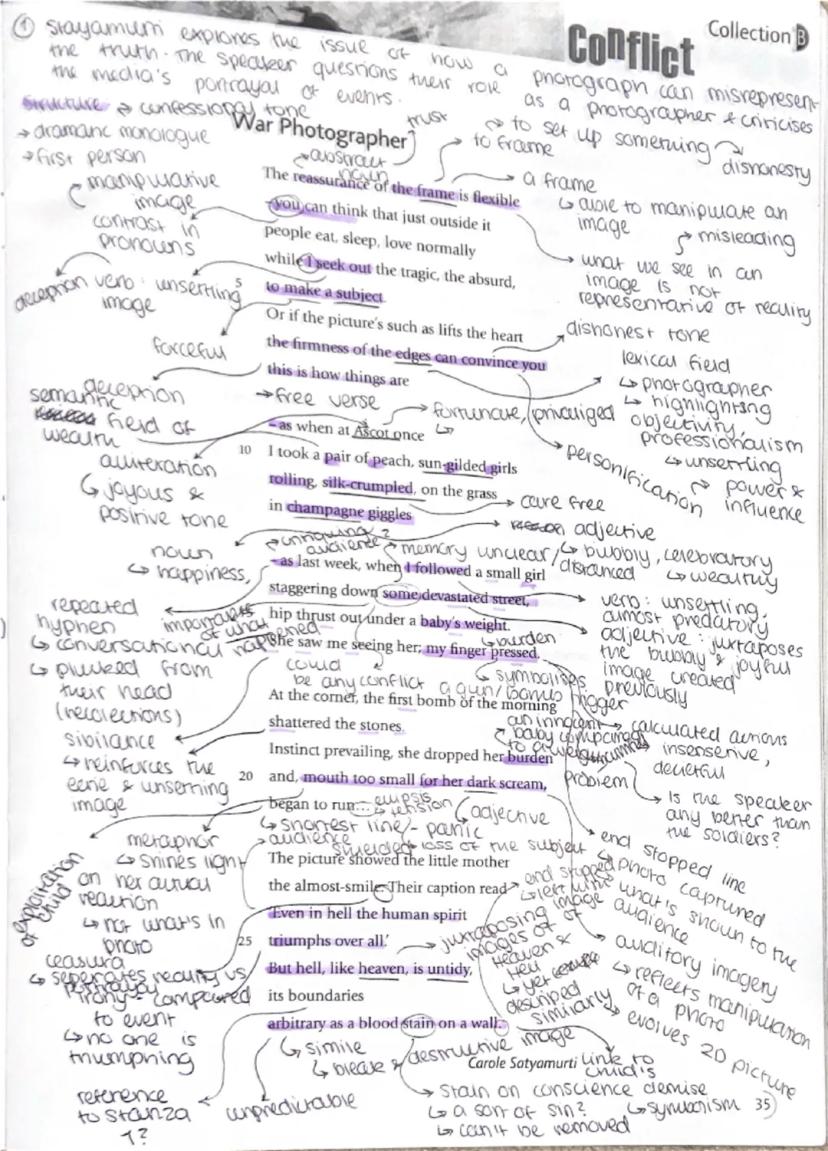 Collection B
Conflict
① Stayamurti explores the issue of how a photograph can misrepresent
the truth. The speaker questions their role as a photographer & criticises
the media's portrayal of events.
structure → confessional tone
→ dramatic monologue
→ first person
War Photographer
trust
abstract noun
to frame
→ to set up something
dishonesty
a frame
↳ able to manipulate an
image
misleading
what we see in an
image is not
representative of reality
manipulative
image
contrast in
pronouns
deception
verb: unsettling
image
forceful
The reassurance of the frame is flexible
– you can think that just outside it
people eat, sleep, love normally
while I seek out the tragic, the absurd,
5 to make a subject.
Or if the picture's such as lifts the heart
the firmness of the edges can convince you
this is how things are
dishonest tone
lexical field
↳ photographer
↳ highlighting
objectivity,
professionalism
↳ unsettling
personification
power &
influence
deception
→ free verse
fortunate, privaliged
semantic
field of
wealth
alliteration
↳ joyous &
positive tone
– as when at Ascot once
10 I took a pair of peach, sun-gilded girls
rolling, silk-crumpled, on the grass
in champagne giggles
care free
adjective
↳ bubbly, celebratory
↳ wealthy
noun
↳ happiness,
audience
memory unclear/
distanced
– as last week, when I followed a small girl
staggering down some devastated street,
hip thrust out under a baby's weight.
She saw me seeing her; my finger pressed.
verb: unsettling,
almost predatory
adjective: juxtaposes
the bubbly & joyful
image created
previously
repeated
hyphen
↳ conversational
↳ plucked from
their head
(recollections)
of what happened
burden
could
be any conflict
symbolises
a gun/bomb trigger
sibilance
↳ reinforces the
eerie & unsettling
image
At the corner, the first bomb of the morning
shattered the stones.
Instinct prevailing, she dropped her burden
20 and, mouth too small for her dark scream,
began to run...
an innocent
baby compared
to a
calculated actions
insensitive,
deceitful
problem
↳ Is the speaker
any better than
the soldiers?
ellipsis
→ tension
adjective
↳ shortest line - panic
audience
shielded
loss of the subject
metaphor
↳ shines light
on her actual
reaction
↳ not what's in
photo
exploitation
of child
The picture showed the little mother
the almost-smile. Their caption read
'Even in hell the human spirit
25 triumphs over all.'
But hell, like heaven, is untidy,
its boundaries
arbitrary as a blood stain on a wall.
end stopped line
↳ photo captured
what's shown to the
audience
end stopped
left with
image of
auditory imagery
↳ reflects manipulation
of a photo
evolves 2D picture
juxtaposing
images of
heaven &
hell
↳ yet
described
similarly
ceasura
↳ seperates reality vs
portrayal
irony - compared
to event
↳ no one is
triumphing
reference
to stanza
1?
unpredictable
↳ simile
↳ bleak & destructive image
Carole Satyamurti
link to
child's
demise
↳ symbolism
→ stain on conscience
↳ a sort of sin?
↳ can't be removed
35